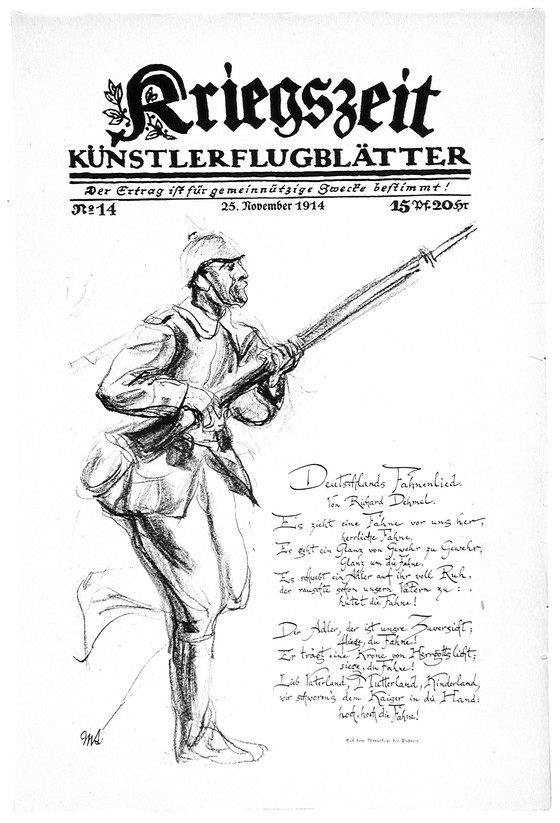 Kriegszeit
KÜNSTLERFLUGBLÄTTER
Der Ertrag ist für gemeinnützige Zwecke bestimmt!
No 14
25. November 1914
15 Pf. 20 Hr
Deutschlands Fahnenlied.
Von Richard Dehmel.
Es zieht eine Fahne vor uns her,
herrliche Fahne.
Es geht ein Glanz von Gewehr zu Gewehr,
Glanz um die Fahne.
Es schwebt ein Adler auf ihr voll Ruh,
der rauschte schon unsern Vätern zu:
hütet die Fahne!
Der Adler, der ist unsre Zuversicht;
fliege, du Fahne!
Er trägt eine Krone von Herrgottslicht,
siege, du Fahne!
Lieb Vaterland, Mutterland, Kinderland,
wir schworen's dem Kaiser in die Hand:
hoch, hoch die Fahne!
Aus dem
MS